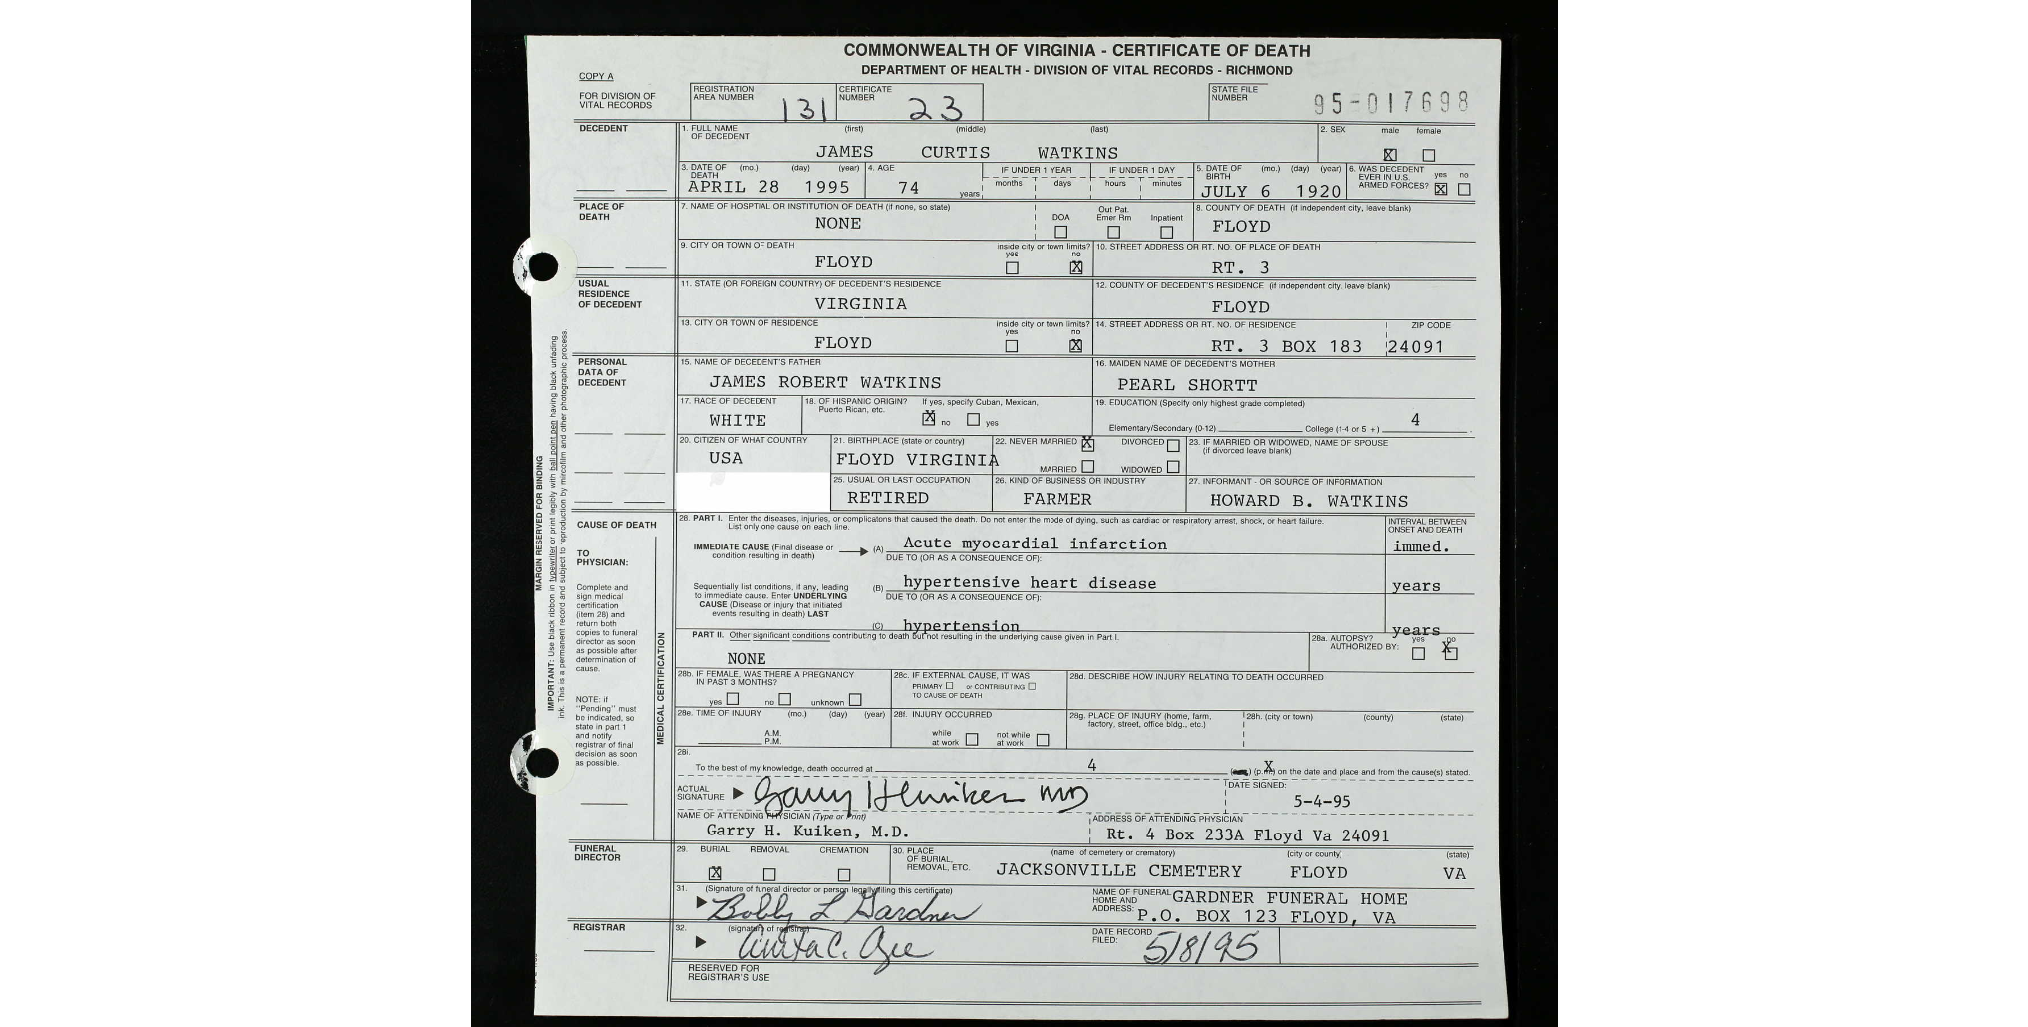 COMMONWEALTH OF VIRGINIA - CERTIFICATE OF DEATH
DEPARTMENT OF HEALTH - DIVISION OF VITAL RECORDS - RICHMOND
COPY A
FOR DIVISION OF VITAL RECORDS
REGISTRATION AREA NUMBER 131
CERTIFICATE NUMBER 23
STATE FILE NUMBER 95-017698
DECEDENT
1. FULL NAME OF DECEDENT (first) (middle) (last)
JAMES CURTIS WATKINS
2. SEX male female
X
3. DATE OF DEATH (mo.) (day) (year)
APRIL 28 1995
4. AGE
74 years
IF UNDER 1 YEAR months days
IF UNDER 1 DAY hours minutes
5. DATE OF BIRTH (mo.) (day) (year)
JULY 6 1920
6. WAS DECEDENT EVER IN U.S. ARMED FORCES? yes no
X
PLACE OF DEATH
7. NAME OF HOSPTIAL OR INSTITUTION OF DEATH (if none, so state)
NONE
DOA Out Pat. Emer Rm Inpatient
8. COUNTY OF DEATH (if independent city, leave blank)
FLOYD
9. CITY OR TOWN OF DEATH
FLOYD
inside city or town limits? yes no
X
10. STREET ADDRESS OR RT. NO. OF PLACE OF DEATH
RT. 3
USUAL RESIDENCE OF DECEDENT
11. STATE (OR FOREIGN COUNTRY) OF DECEDENT'S RESIDENCE
VIRGINIA
12. COUNTY OF DECEDENT'S RESIDENCE (if independent city, leave blank)
FLOYD
13. CITY OR TOWN OF RESIDENCE
FLOYD
inside city or town limits? yes no
X
14. STREET ADDRESS OR RT. NO. OF RESIDENCE ZIP CODE
RT. 3 BOX 183 24091
PERSONAL DATA OF DECEDENT
15. NAME OF DECEDENT'S FATHER
JAMES ROBERT WATKINS
16. MAIDEN NAME OF DECEDENT'S MOTHER
PEARL SHORTT
17. RACE OF DECEDENT
WHITE
18. OF HISPANIC ORIGIN? If yes, specify Cuban, Mexican, Puerto Rican, etc.
X no yes
19. EDUCATION (Specify only highest grade completed)
Elementary/Secondary (0-12) College (1-4 or 5 +) 4
20. CITIZEN OF WHAT COUNTRY
USA
21. BIRTHPLACE (state or country)
FLOYD VIRGINIA
22. NEVER MARRIED X DIVORCED
MARRIED WIDOWED
23. IF MARRIED OR WIDOWED, NAME OF SPOUSE (if divorced leave blank)
25. USUAL OR LAST OCCUPATION
RETIRED
26. KIND OF BUSINESS OR INDUSTRY
FARMER
27. INFORMANT - OR SOURCE OF INFORMATION
HOWARD B. WATKINS
CAUSE OF DEATH
TO PHYSICIAN:
Complete and sign medical certification (item 28) and return both copies to funeral director as soon as possible after determination of cause.
NOTE: if "Pending" must be indicated, so state in part 1 and notify registrar of final decision as soon as possible.
MEDICAL CERTIFICATION
28. PART I. Enter the diseases, injuries, or complicatons that caused the death. Do not enter the mode of dying, such as cardiac or respiratory arrest, shock, or heart failure.
List only one cause on each line.
INTERVAL BETWEEN ONSET AND DEATH
IMMEDIATE CAUSE (Final disease or condition resulting in death) (A) Acute myocardial infarction immed.
DUE TO (OR AS A CONSEQUENCE OF):
Sequentially list conditions, if any, leading to immediate cause. Enter UNDERLYING CAUSE (Disease or injury that initiated events resulting in death) LAST
(B) hypertensive heart disease years
DUE TO (OR AS A CONSEQUENCE OF):
(C) hypertension years
PART II. Other significant conditions contributing to death but not resulting in the underlying cause given in Part I.
NONE
28a. AUTOPSY? AUTHORIZED BY: yes no
X
28b. IF FEMALE, WAS THERE A PREGNANCY IN PAST 3 MONTHS?
yes no unknown
28c. IF EXTERNAL CAUSE, IT WAS
PRIMARY or CONTRIBUTING
TO CAUSE OF DEATH
28d. DESCRIBE HOW INJURY RELATING TO DEATH OCCURRED
28e. TIME OF INJURY (mo.) (day) (year)
A.M.
P.M.
28f. INJURY OCCURRED
while at work not while at work
28g. PLACE OF INJURY (home, farm, factory, street, office bldg., etc.)
28h. (city or town) (county) (state)
28i.
To the best of my knowledge, death occurred at 4 (p.m.) X on the date and place and from the cause(s) stated.
ACTUAL SIGNATURE Garry H Kuiken MD
DATE SIGNED:
5-4-95
NAME OF ATTENDING PHYSICIAN (Type or Print)
Garry H. Kuiken, M.D.
ADDRESS OF ATTENDING PHYSICIAN
Rt. 4 Box 233A Floyd Va 24091
FUNERAL DIRECTOR
29. BURIAL REMOVAL CREMATION
X
30. PLACE OF BURIAL, REMOVAL, ETC. (name of cemetery or crematory) (city or county) (state)
JACKSONVILLE CEMETERY FLOYD VA
31. (Signature of funeral director or person legally filing this certificate)
Bobby L Gardner
NAME OF FUNERAL HOME AND ADDRESS: GARDNER FUNERAL HOME
P.O. BOX 123 FLOYD, VA
REGISTRAR
32. (signature of registrar)
Anita C. Agee
DATE RECORD FILED: 5/8/95
RESERVED FOR REGISTRAR'S USE
MARGIN RESERVED FOR BINDING
IMPORTANT: Use black ribbon in typewriter or print legibly with ball point pen having black unfading
ink. This is a permanent record and subject to reproduction by mircofilm and other photographic process.